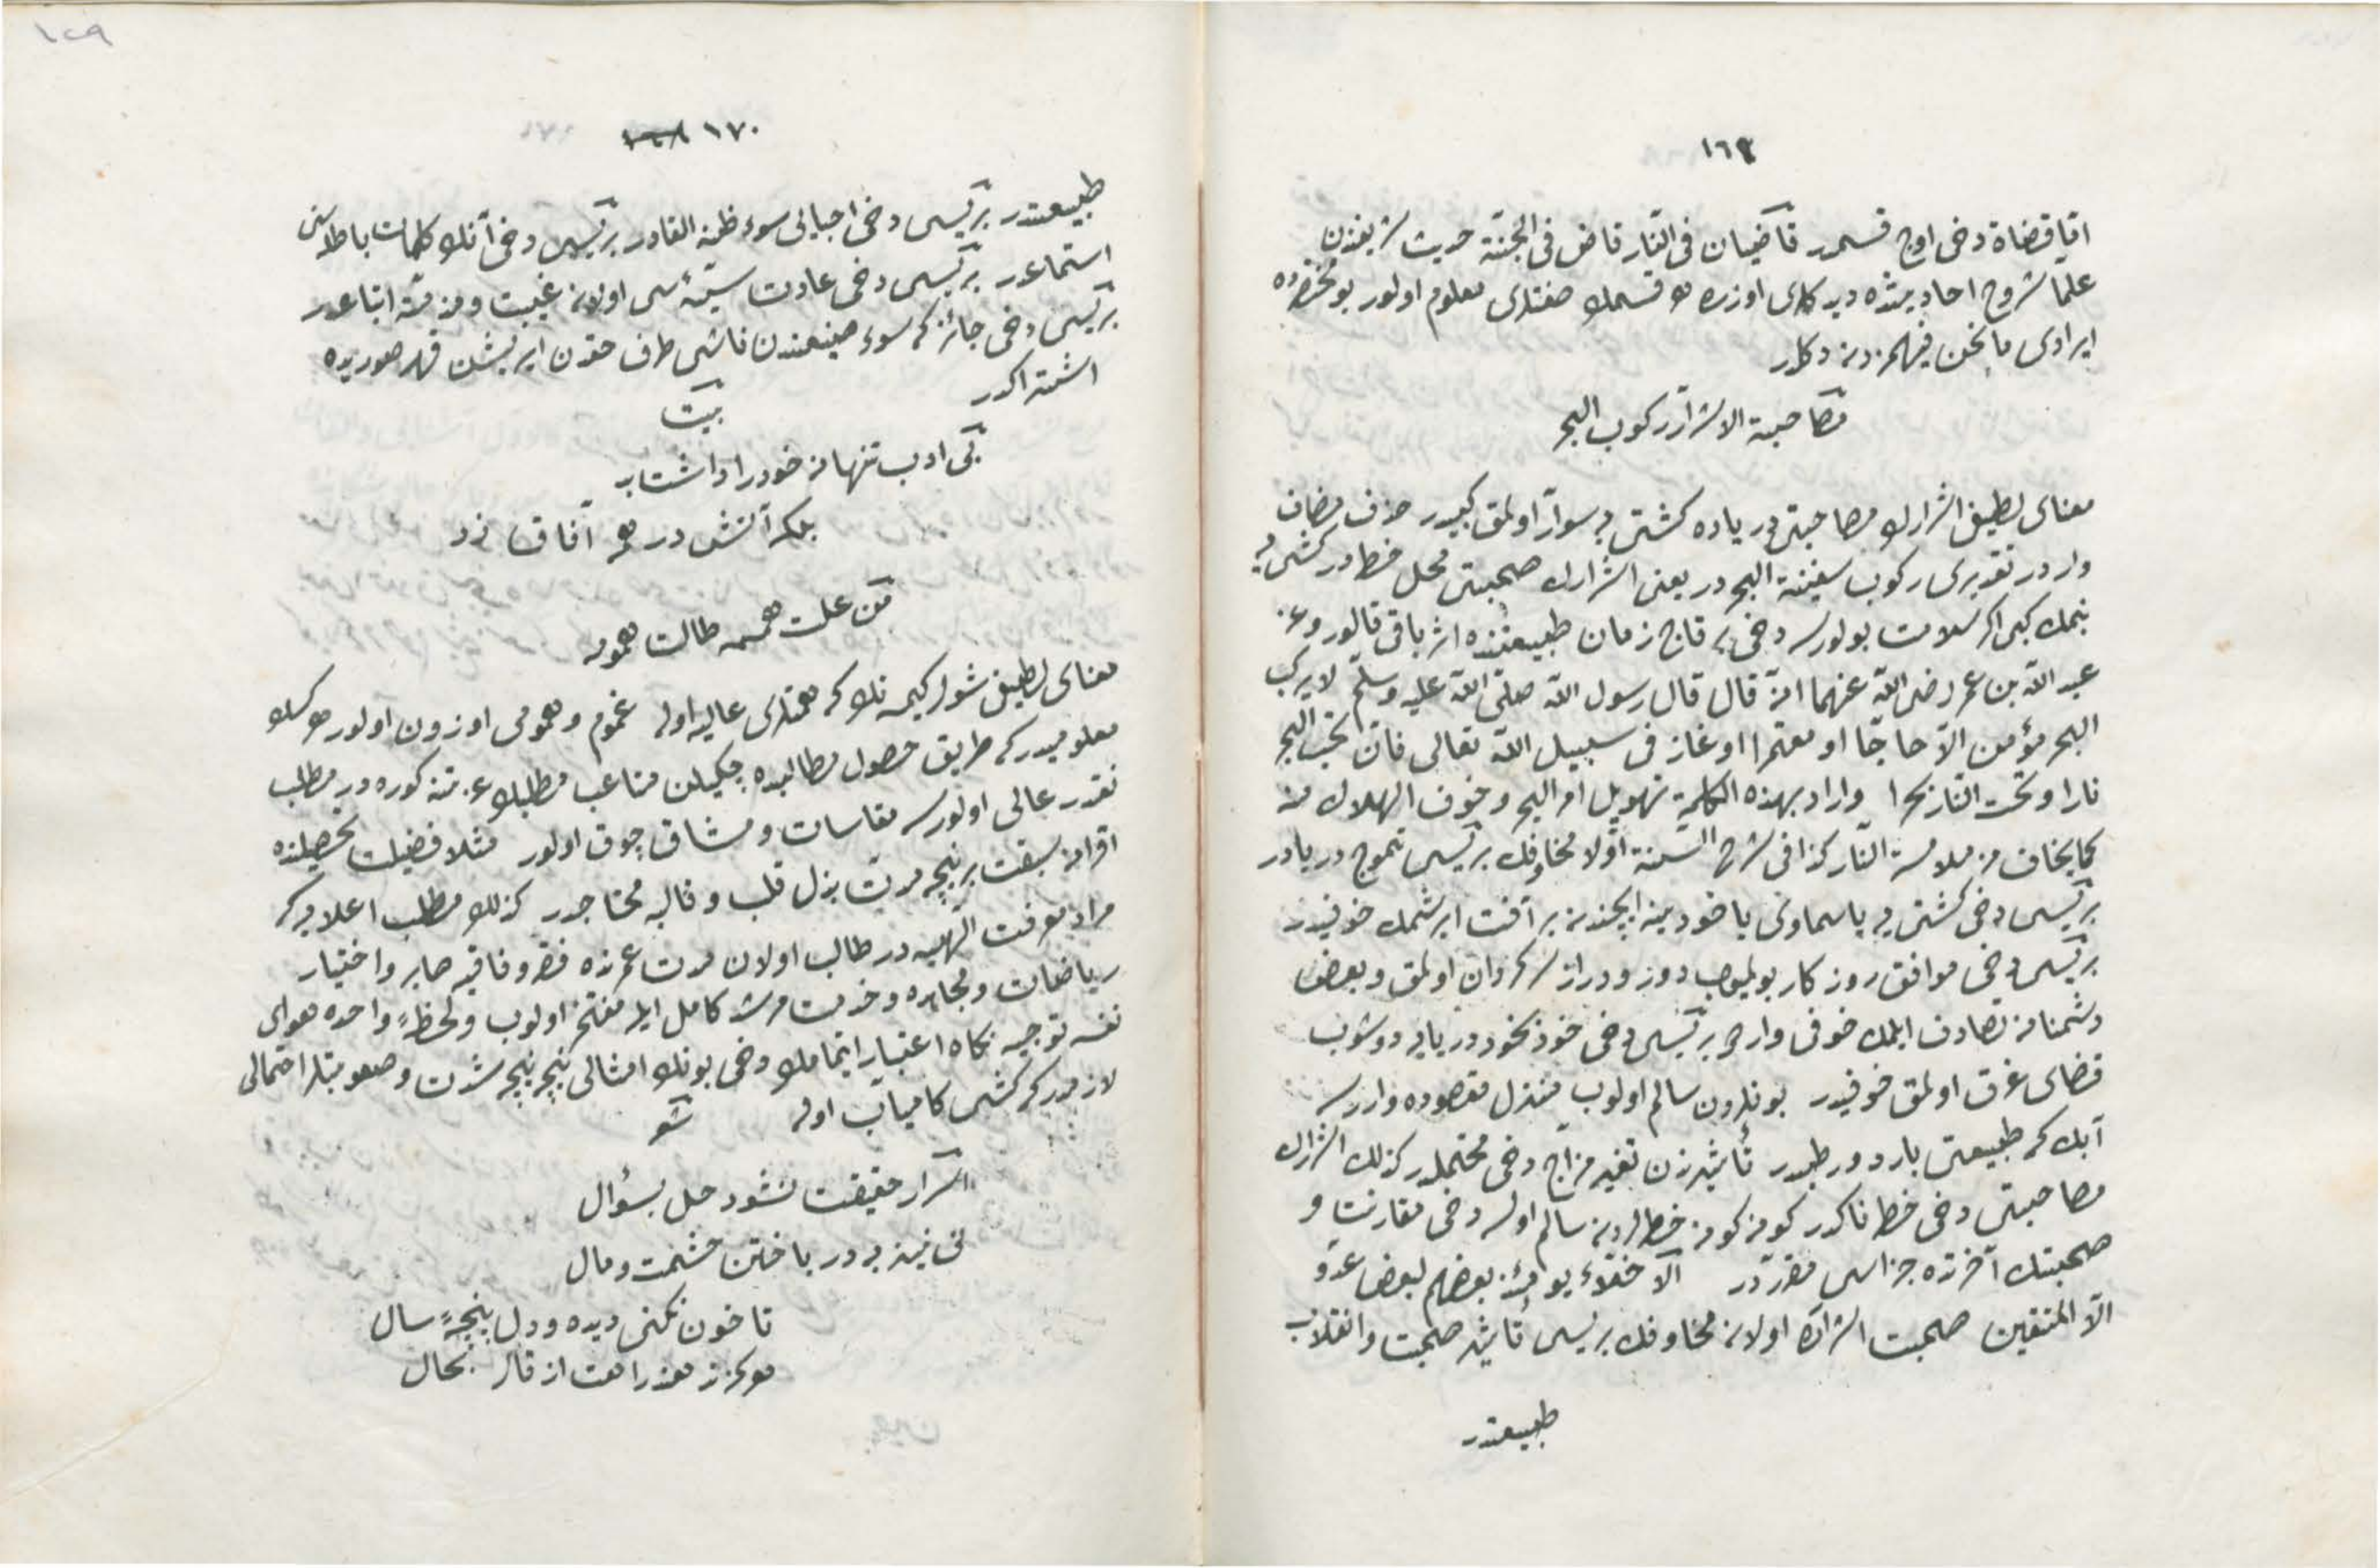 ١٦٩
اما قضاة دخی اوچ قسمدر قاضیان فی النار قاض فی الجنة حدیث شریفندن
علما شروح احادیثده دیدکلری اوزره هر قسمك صفتلری معلوم اولور بو مختصرده
ایرادی ما نحن فیهمزدن دکلدر
مصاحبة الاشرار رکوب البحر
معنای لطیفی اشرارك مصاحبتی دریاده کشتی یه سوار اولمق کبیدر حذف مضاف
واردر تقدیری رکوب سفینة البحر در یعنی اشرارك صحبتی محل خطردر کشتی یه
بنمك کبی اکر سلامت بولورسه دخی بر قاچ زمان طبیعتنده اثر باقی قالور وعن
عبد الله بن عمر رضی الله عنهما انه قال قال رسول الله صلی الله علیه وسلم لا یرکب
البحر مؤمن الا حاجا او معتمرا او غاز فی سبیل الله تعالی فان تحت البحر
نارا وتحت النار بحرا واراد بهذه الکلمة تهویل امر البحر وخوف الهلاك منه
کما یخاف من ملامسة النار کذا فی شرح السنة اولا مخاوفك بریسی تموج دریادر
بریسی دخی کشتی یه یا سماوی یا خود ینه ایچندن بر آفت ایرشمك خوفیدر
بریسی دخی موافق روزکار بولمیوب دور و دراز سرکردان اولمق وبعض
دشمنانه تصادف ایلمك خوفی وار بریسی دخی خوذ بخود دریایه دوشوب
قضای غرق اولمق خوفیدر بونلردن سالم اولوب منزل مقصوده وارسه
آبك که طبیعتی بارد و رطبدر تأثیرندن تغیر مزاج دخی محتملدر کذلك اشرارك
مصاحبتی دخی خطرناکدر کونه کونه خطرلردن سالم اولسه دخی مقارنت و
صحبتنك آخرتده جزاسی مقرردر الاخلاء یومئذ بعضهم لبعض عدو
الا المتقین صحبت اشرارده اولان مخاوفك بریسی تأثیر صحبت وانقلاب
طبیعتدر
١٧٠
طبیعتدر بریسی دخی احبابی سوء ظنه القادر بریسی دخی آنلرك کلمات باطله سنی
استماعدر بریسی دخی عادت سیئه سی اولان غیبت ومذمته اتباعدر
بریسی دخی جائز که سوء صنیعندن ناشی طرف حقدن ایریشن قهر صوریده
اشتراکدر
بیت
بی ادب تنها نه خود را داشت بد
بلکه آتش در همه آفاق زد
من علت همته طالت همومه
معنای لطیفی شول کیمسه نك که همتلری عالیه اوله غموم وهمومی اوزون اولور هر کسك
معلومیدر که طریق حصول مطالبده چکیلن متاعب مطلبك عزتنه کوره در مطلب
نقدر عالی اولورسه مقاسات ومشاق چوق اولور مثلا فضیلت تحصیلنده
اقرانه سبقت بر نیچه مدت بذل قلب وقالبه محتاجدر کذلك مطلب اعلا یه که
مراد معرفت الهیه در طالب اولان مدت عمرنده فقر وفاقه یه صابر واختیار
ریاضات ومجاهده وخدمت مرشد کامل ایله مفتخر اولوب ولحظهٔ واحده هوای
نفسه توجیه نکاه اعتبار ایتمامك دخی بونك امثالی نیجه نیجه شدت وصعوبتلر احتمالی
لازمدر که کشی کامیاب اوله شعر
اسرار حقیقت نشود حل بسؤال
نی نیز به در باختن حشمت ومال
تا خون نکنی دیده ودل پنجه سال
هرکز ندهند راهت از قال بحال